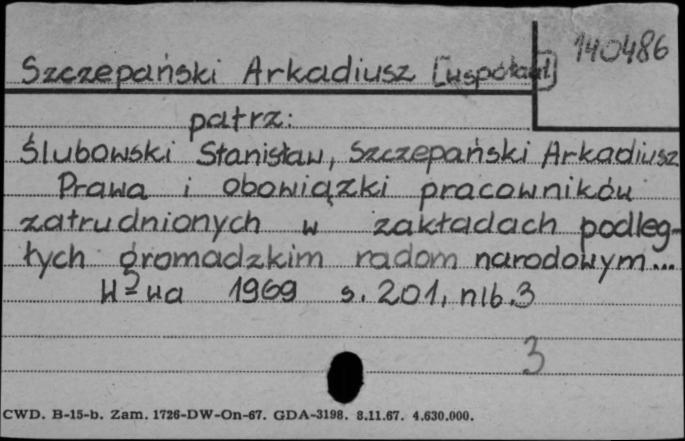 140486
Szczepański Arkadiusz [współaut]
patrz:
Ślubowski Stanisław, Szczepański Arkadiusz
Prawa i obowiązki pracowników
zatrudnionych w zakładach podleg-
łych gromadzkim radom narodowym...
W-wa 1969 s. 201, nlb. 3
3
CWD. B-15-b. Zam. 1726-DW-On-67. GDA-3198. 8.11.67. 4.630.000.